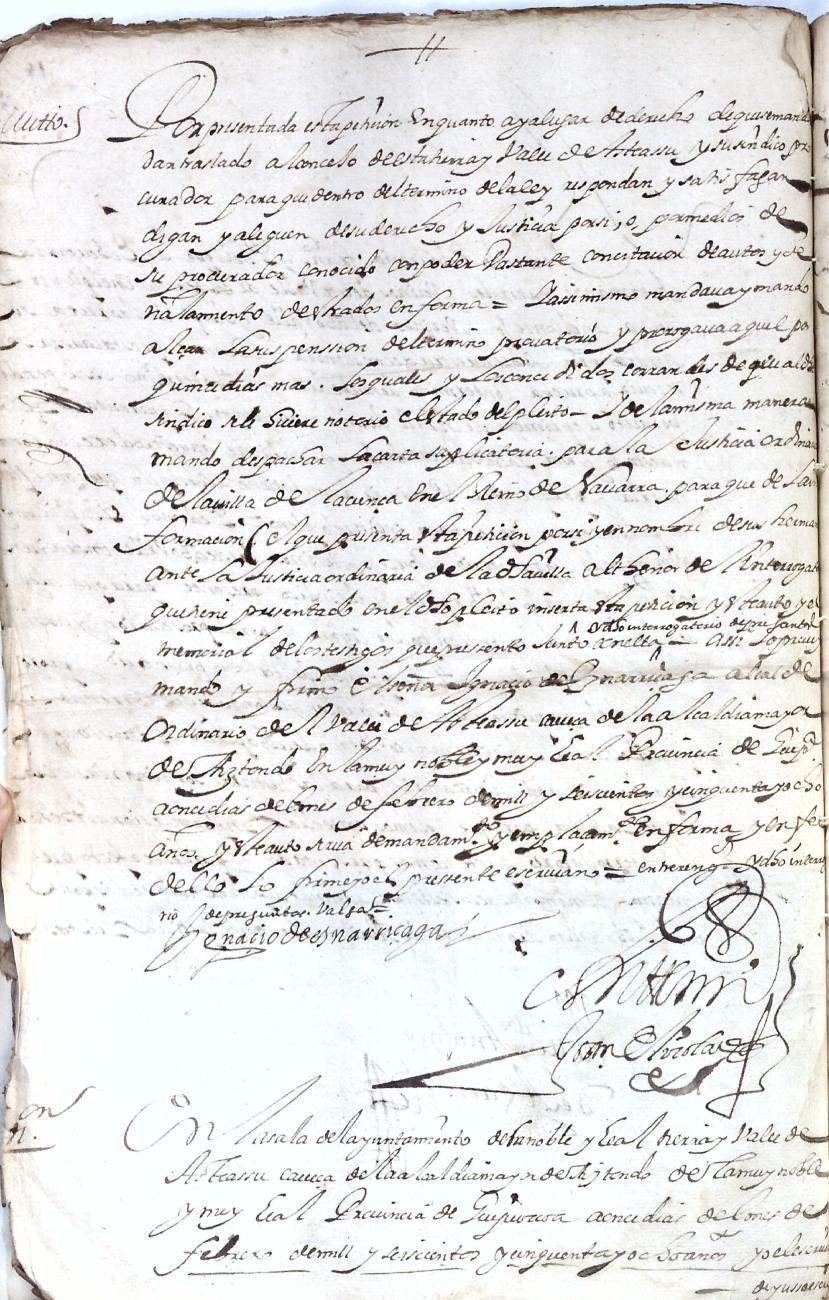 Autto.
Por presentada esta petición En quanto a ya lugar de derecho de que se manda
dar traslado a loncelo de esta tierra y Valle de Artassu y su sindico pro
curador para que dentro del termino de la ley respondan y satisfagan
digan y aleguen de su derecho y Justicia por si, o, por medio de
su procurador conocido con poder Vastante con citacion de autos y se
ñalamiento de estrados en forma = Y assi mismo mandava y mando
alçar La suspenssion del termino provatorio y prorogava a quel por
quince dias mas. los quales y Los once di dos corran des de que al dho
sindico se le hiciere notorio el estado del pleito – Y de la misma manera
mando despachar La carta suplicatoria. para la Justicia ordinaria
de la villa de lacunça En el Reino de Navarra. para que de La in
formacion (el que presenta esta peticion por si y en nombre de sus herman
ante La Justicia ordinaria de la dha villa al thenor de l Interrogato
que tiene presentado en el dho pleito inserta esta peticion y este auto y el
y dho interrogatorio de preguntas
memorial de los testigos que presento Junto a nella – assi lo proveyo
mando y firmo el señor Ignacio de Ynarriçaga alcalde
ordinario de l Valle de Artassu caveça de la alcaldia mayor
de Aiztondo En la muy noble y muy Leal Provincia de Guipca
a once dias del mes de febrero de mill y seiscientos y cinquenta y ocho
años. y este auto sirva de mandamto y emplaçamto en forma y en fee
dello Lo firme yo el presente escrivano = entrereng. y dho interrog
rio de preguntas. Valga =
Ignacio de ynarriçaga
Ante mi
Joan
on
En la sala del ayuntamiento de la noble y Leal tierra y Valle de
Artassu caveça de la alcaldia mayor de Aiztondo de la muy noble
y muy Leal Provincia de Guipuzcoa a once dias del mes de
febrero de mill y seiscientos y cinquenta y ocho años yo el escriv
de yusso escri